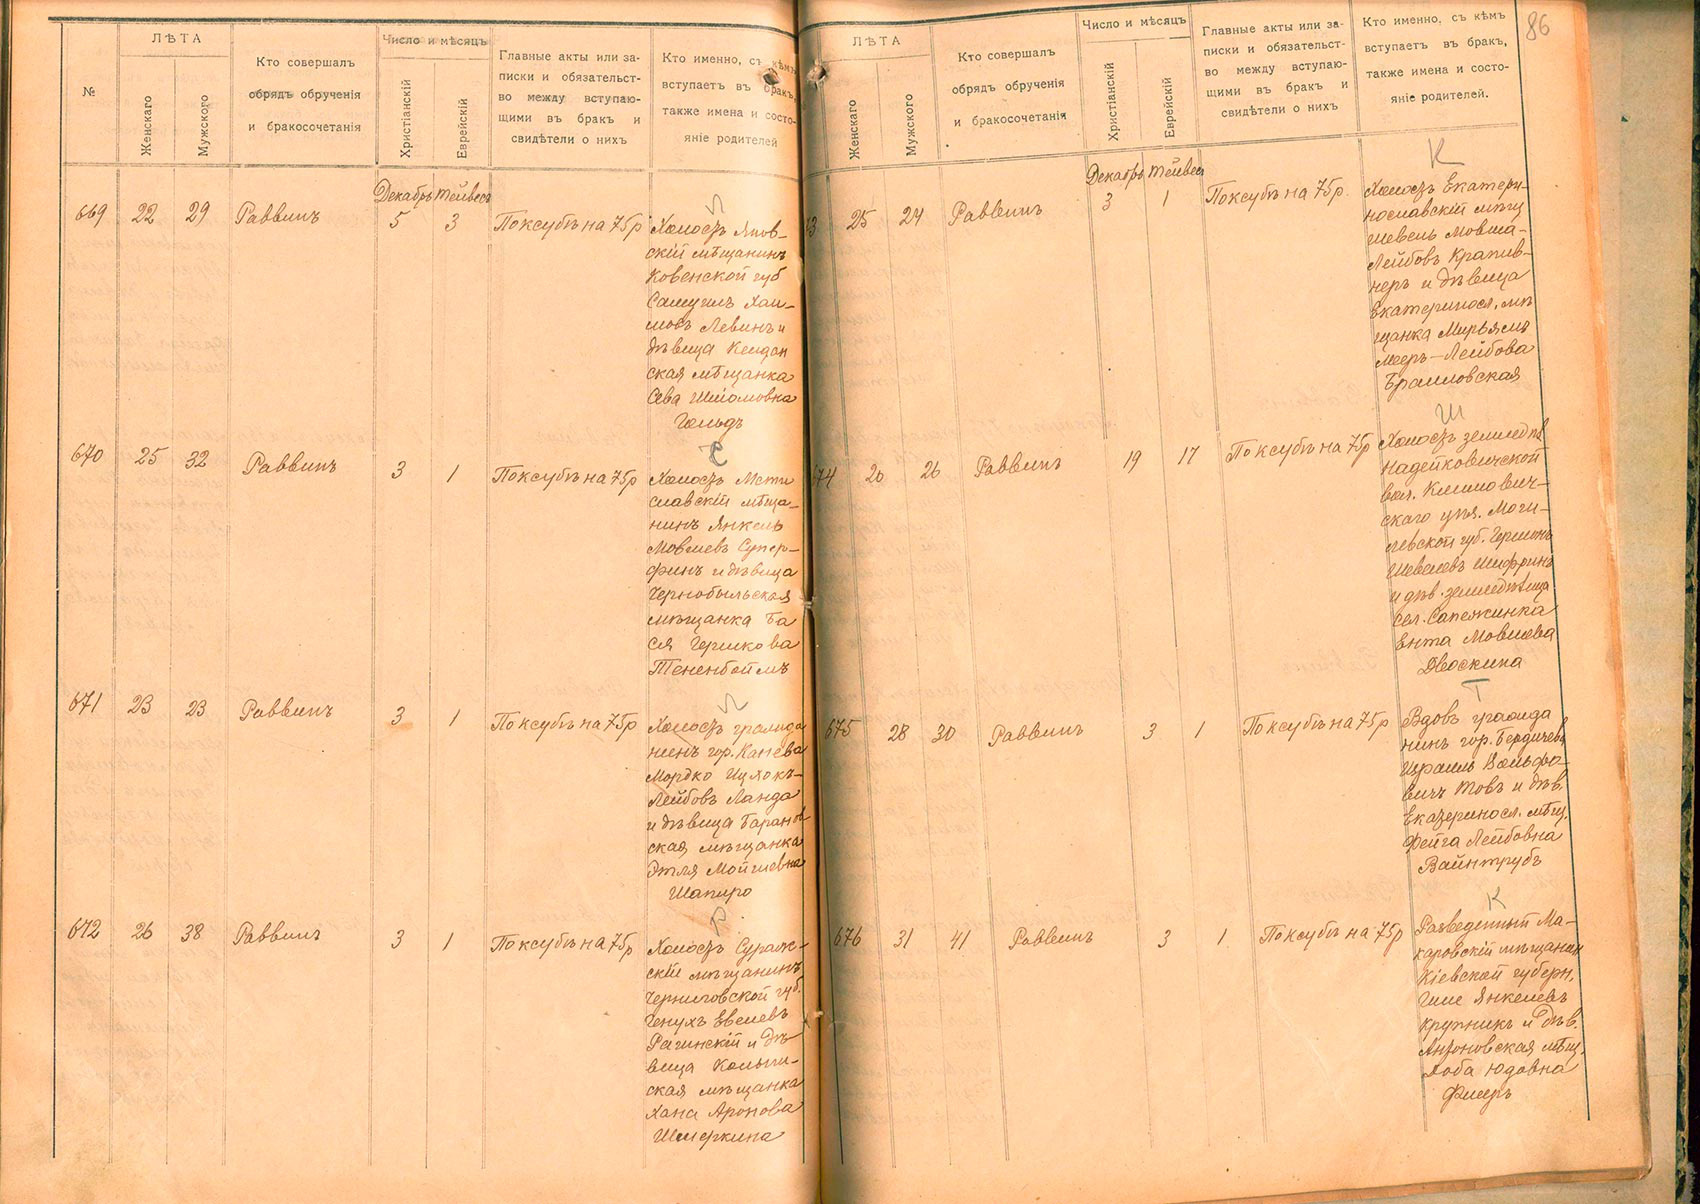 №
ЛѢТА
Женскаго
Мужского
Кто совершалъ
обрядъ обрученія
и бракосочетанія
Число и мѣсяцъ
Христіанскій
Еврейскій
Главные акты или за-
писки и обязательст-
во между вступаю-
щими въ бракъ и
свидѣтели о нихъ
Кто именно, съ кѣмъ
вступаетъ въ бракъ,
также имена и состо-
яніе родителей
Декабрь Тейвесъ
669 22 29 Раввинъ 5 3 По ксубѣ на 75 р
Холостъ Янов-
скій мѣщанинъ
Ковенской губ
Самуилъ Хаи-
мовъ Левинъ и
дѣвица Кейдан
ская мѣщанка
Сва Шліомовна
Гольдъ
670 25 32 Раввинъ 3 1 По ксубѣ на 75 р
С
Холостъ Мсти
славскій мѣща-
нинъ Янкель
Мовшевъ Супер-
финъ и дѣвица
Чернобыльская
мѣщанка Ба
ся Гершкова
Тененбоймъ
671 23 23 Раввинъ 3 1 По ксубѣ на 75 р
Л
Холостъ гражда
нинъ гор. Канева
Мордко Ицхокъ-
Лейбовъ Ланда
и дѣвица Баранов
ская мѣщанка
Этля Мойшевна
Шапиро
672 26 38 Раввинъ 3 1 По ксубѣ на 75 р
Р
Холостъ Сураж-
скій мѣщанинъ
Черниговской губ.
Генухъ Евелевъ
Рагинскій и дѣ
вица Копы-
ская мѣщанка
Хана Аронова
Шмеркина
86
ЛѢТА
Женскаго
Мужского
Кто совершалъ
обрядъ обрученія
и бракосочетанія
Число и мѣсяцъ
Христіанскій
Еврейскій
Главные акты или за-
писки и обязательст-
во между вступаю-
щими въ бракъ и
свидѣтели о нихъ
Кто именно, съ кѣмъ
вступаетъ въ бракъ,
также имена и состо-
яніе родителей.
Декабрь Тейвесъ
3 25 24 Раввинъ 3 1 По ксубѣ на 75 р.
К
Холостъ Екатери-
нославскій мѣщ
Шевель Мовша-
Лейбовъ Крапив-
неръ и дѣвица
Екатеринося. мѣ
щанка Мирьямъ
Меер-Лейбова
Браиловская
74 20 26 Раввинъ 19 17 По ксубѣ на 75 р
Ш
Холостъ земледѣл
Надейковичской
вол. Климович-
скаго уѣз. Моги-
левской губ. Гершонъ
Шевелевъ Шифринъ
и дѣв. земледѣлица
сел. Сапежинка
Ента Мовшева
Двоскина
675 28 30 Раввинъ 3 1 По ксубѣ на 75 р
Т
Вдовъ гражда
нинъ гор. Бердичева
Израиль Вольфо-
вичъ Товъ и дѣв.
Екатеринося. мѣщ.
Фейга Лейбовна
Вайнтрубъ
676 31 41 Раввинъ 3 1 По ксубѣ на 75 р
К
Разведенный Ма-
каровскій мѣщанин
Кіевской губерн,
Янкелевъ
Крупникъ и дѣв.
Антоновская мѣщ.
Хоба Юдовна